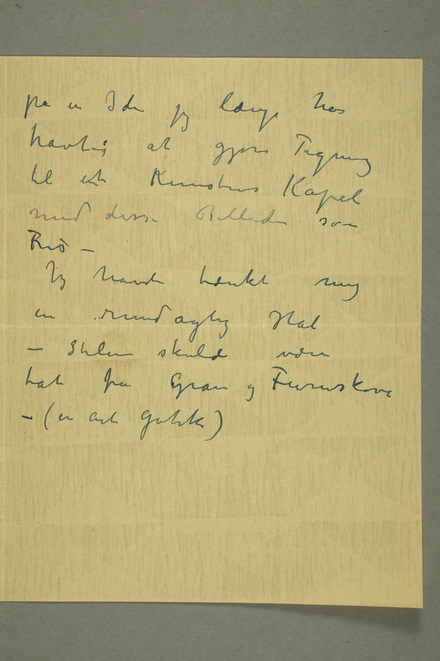 på en Ide jeg længe har
havt – at gjøre Tegning
til et Kunstens Kapel
med disse Billeder som
Fris –
Jeg havde tænkt mig
en rundagtig Hal
– Stilen skulde være
tat fra Gran og Furruskove
– (en art gotik)